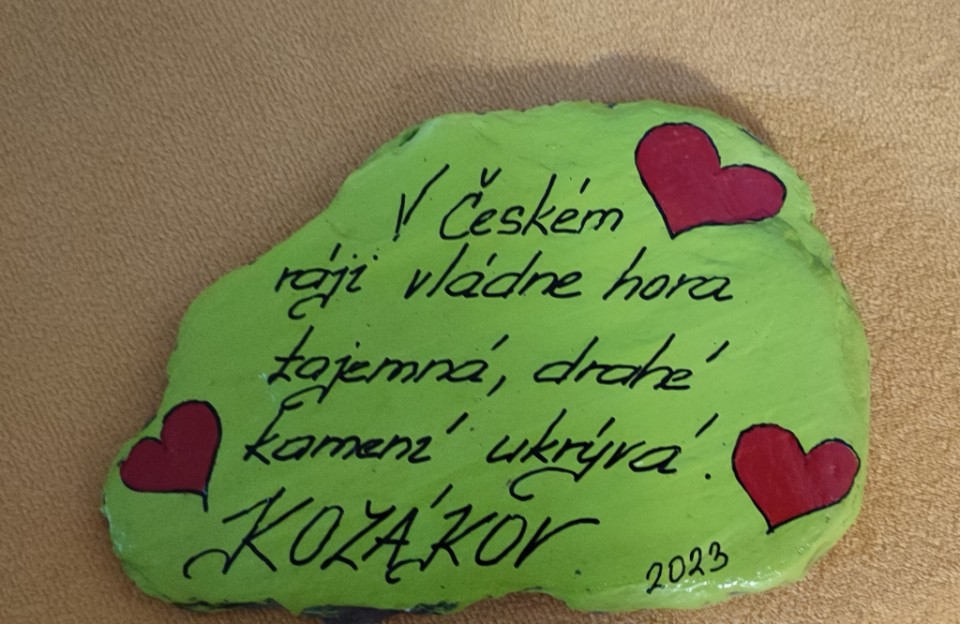 V Českém
ráji vládne hora
tajemná, drahé
kamení ukrývá.
KOZÁKOV
2023